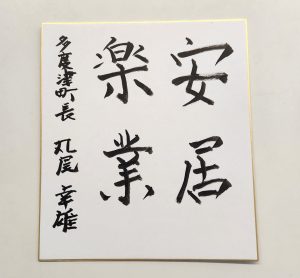 安居
楽業
多度津町長 丸尾幸雄